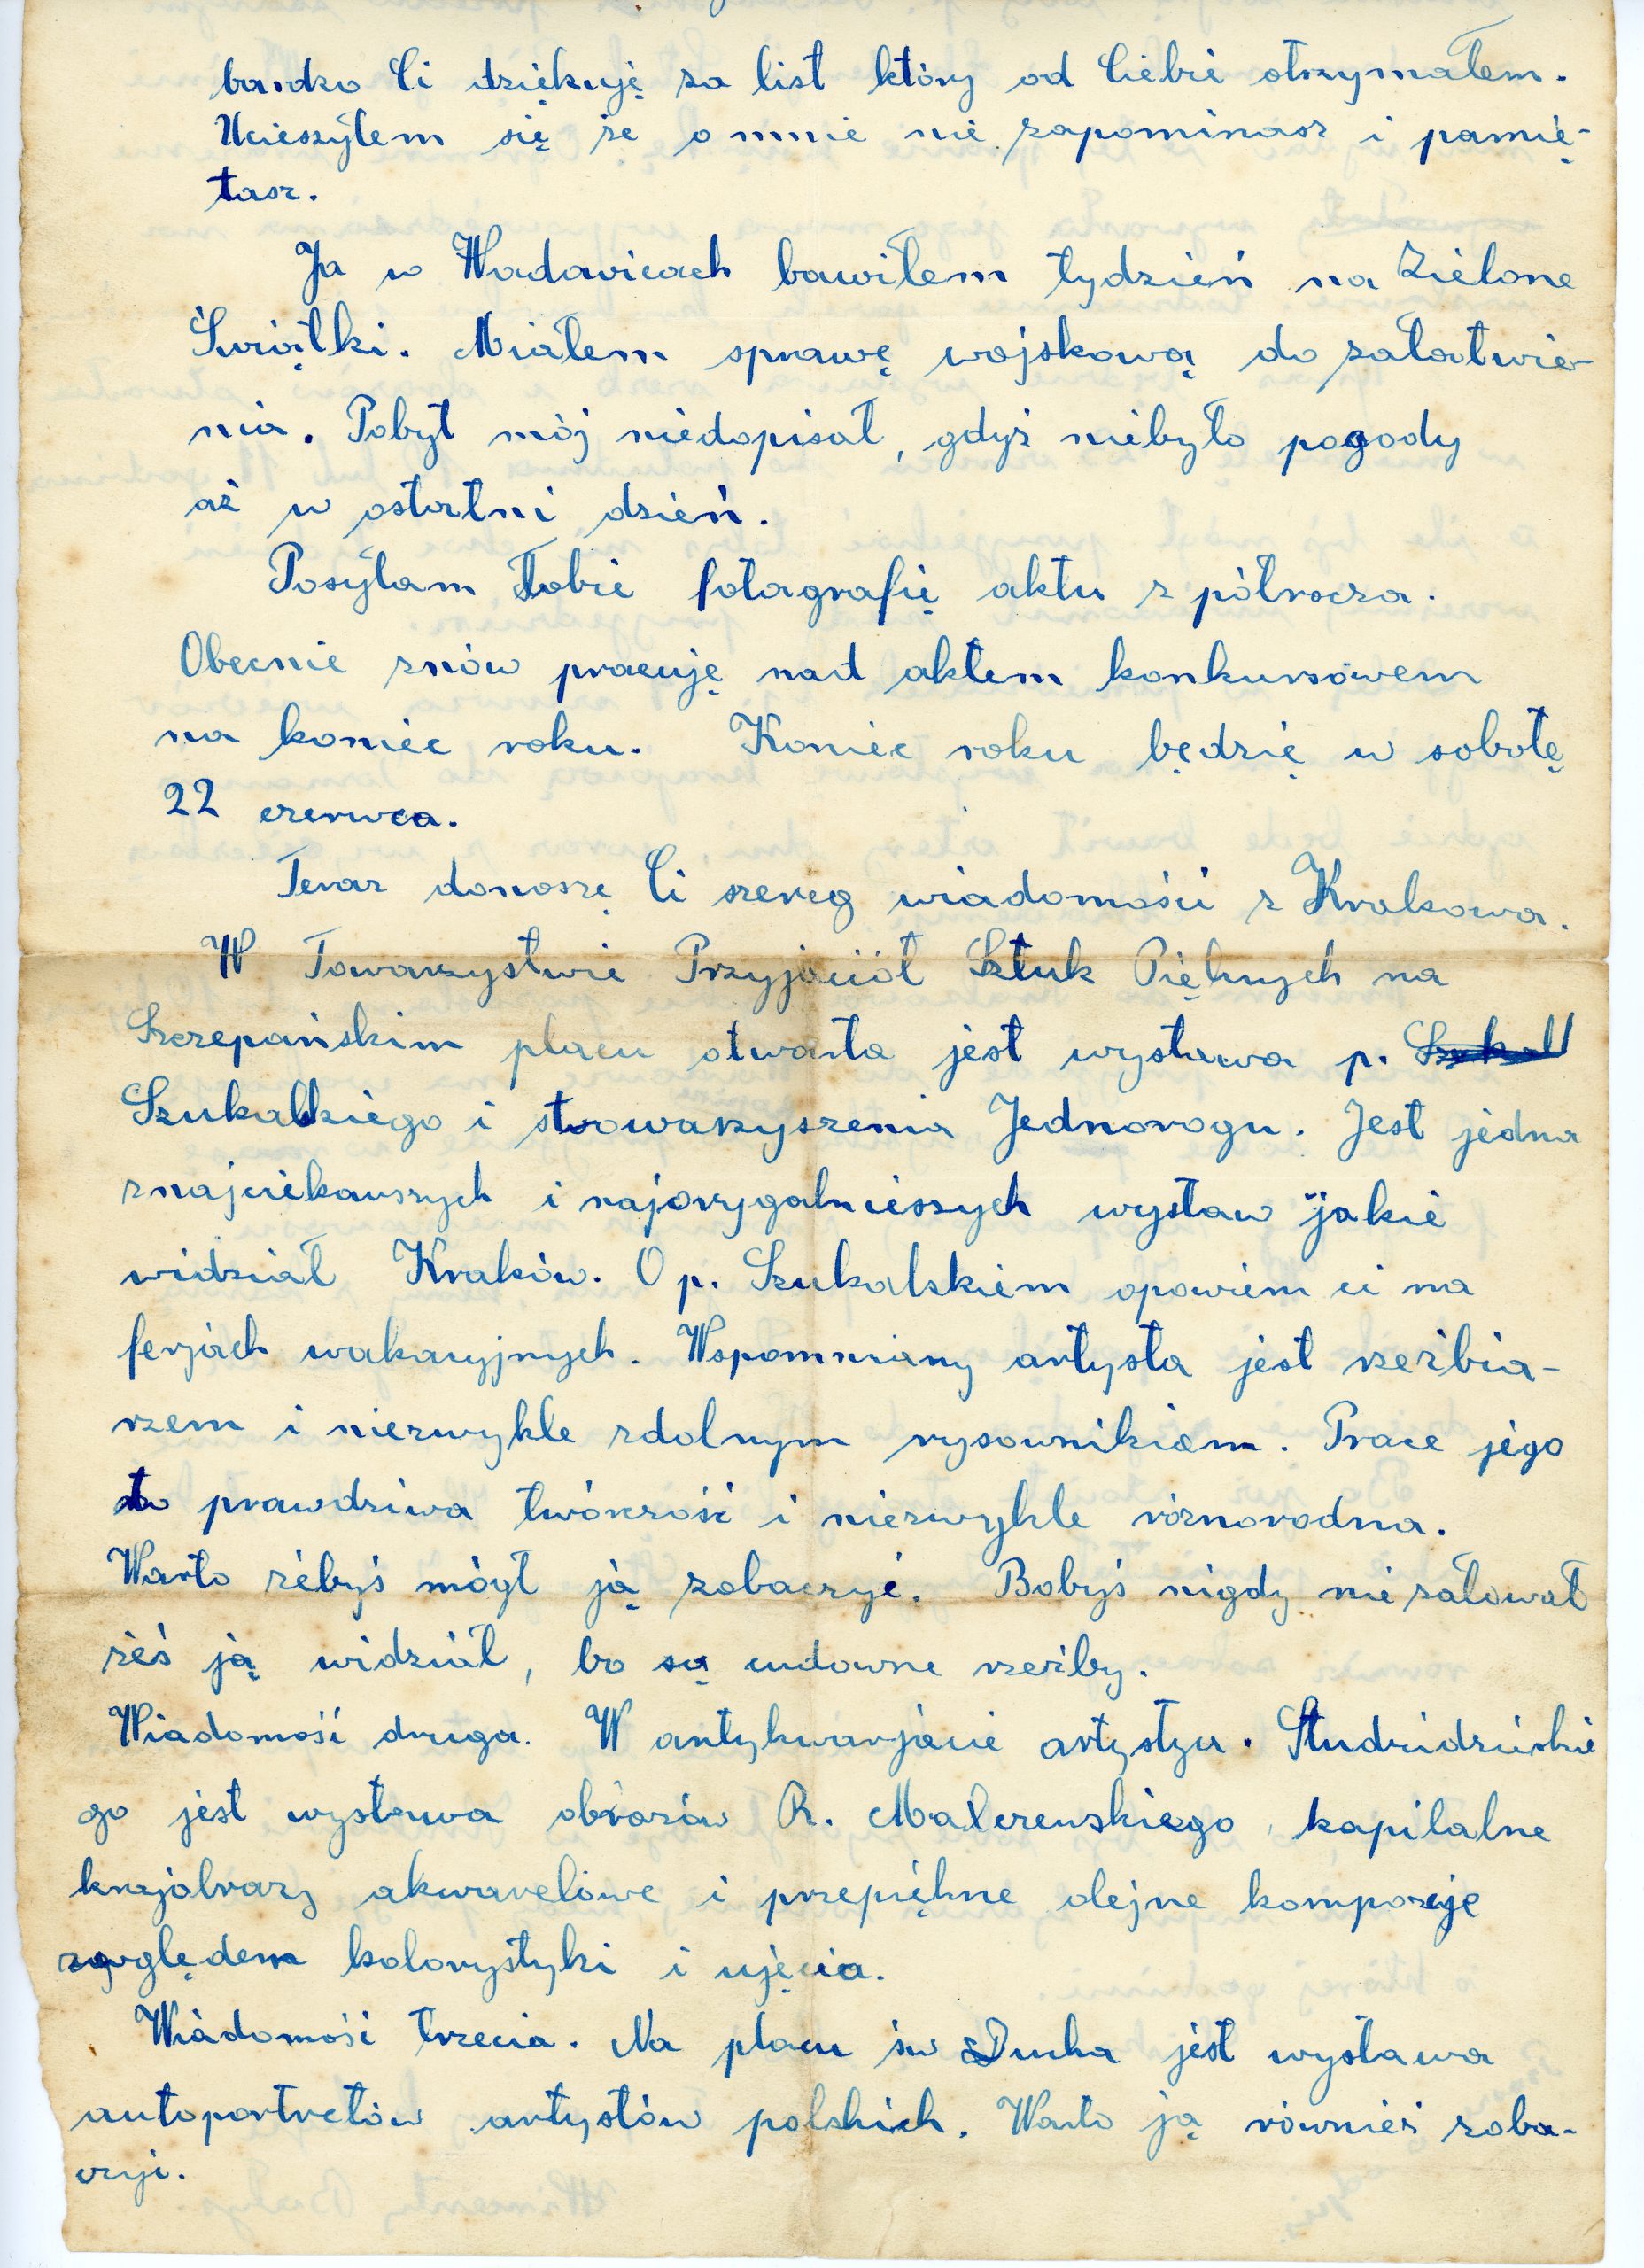 bardzo Ci dziękuję za list który od Ciebie otrzymałem.
Ucieszyłem się że o mnie nie zapominasz i pamię-
tasz.
Ja w Wadowicach bawiłem tydzień na Zielone
Świątki. Miałem sprawę wojskową do załatwie-
nia. Pobyt mój niedopisał, gdyż niebyło pogody
aż w ostatni dzień.
Posyłam Tobie fotografię aktu z półrocza.
Obecnie znów pracuję nad aktem konkursowem
na koniec roku. Koniec roku będzię w sobotę
22 czerwca.
Teraz donoszę Ci szereg wiadomości z Krakowa.
W Towarzystwie Przyjaciół Sztuk Pięknych na
Szczepańskim placu otwarta jest wystawa p.
Szukalskiego i stowarzyszenia Jednorogu. Jest jedna
z najciekawszych i najorygalnieszych wystaw jakie
widział Kraków. O p. Szukalskiem opowiem ci na
ferjach wakacyjnych. Wspomniany artysta jest rzeźbia-
rzem i niezwykle zdolnym rysownikiem. Prace jego
to prawdziwa twórczość i niezwykle różnorodna.
Warto żebyś mógł ją zobaczyć. Bobyś nigdy nie załował
żeś ją widział, bo są cudowne rzeźby.
Wiadomość druga. W antykwarjacie artystycz.
go jest wystawa obrazów R. Malczewskiego, kapitalne
krajobrazy akwarelowe i przepiękne olejne kompozycje
względem kolorystyki i ujęcia.
Wiadomość trzecia. Na placu św Ducha jest wystawa
autoportretów artystów polskich. Warto ją również zoba-
czyć.